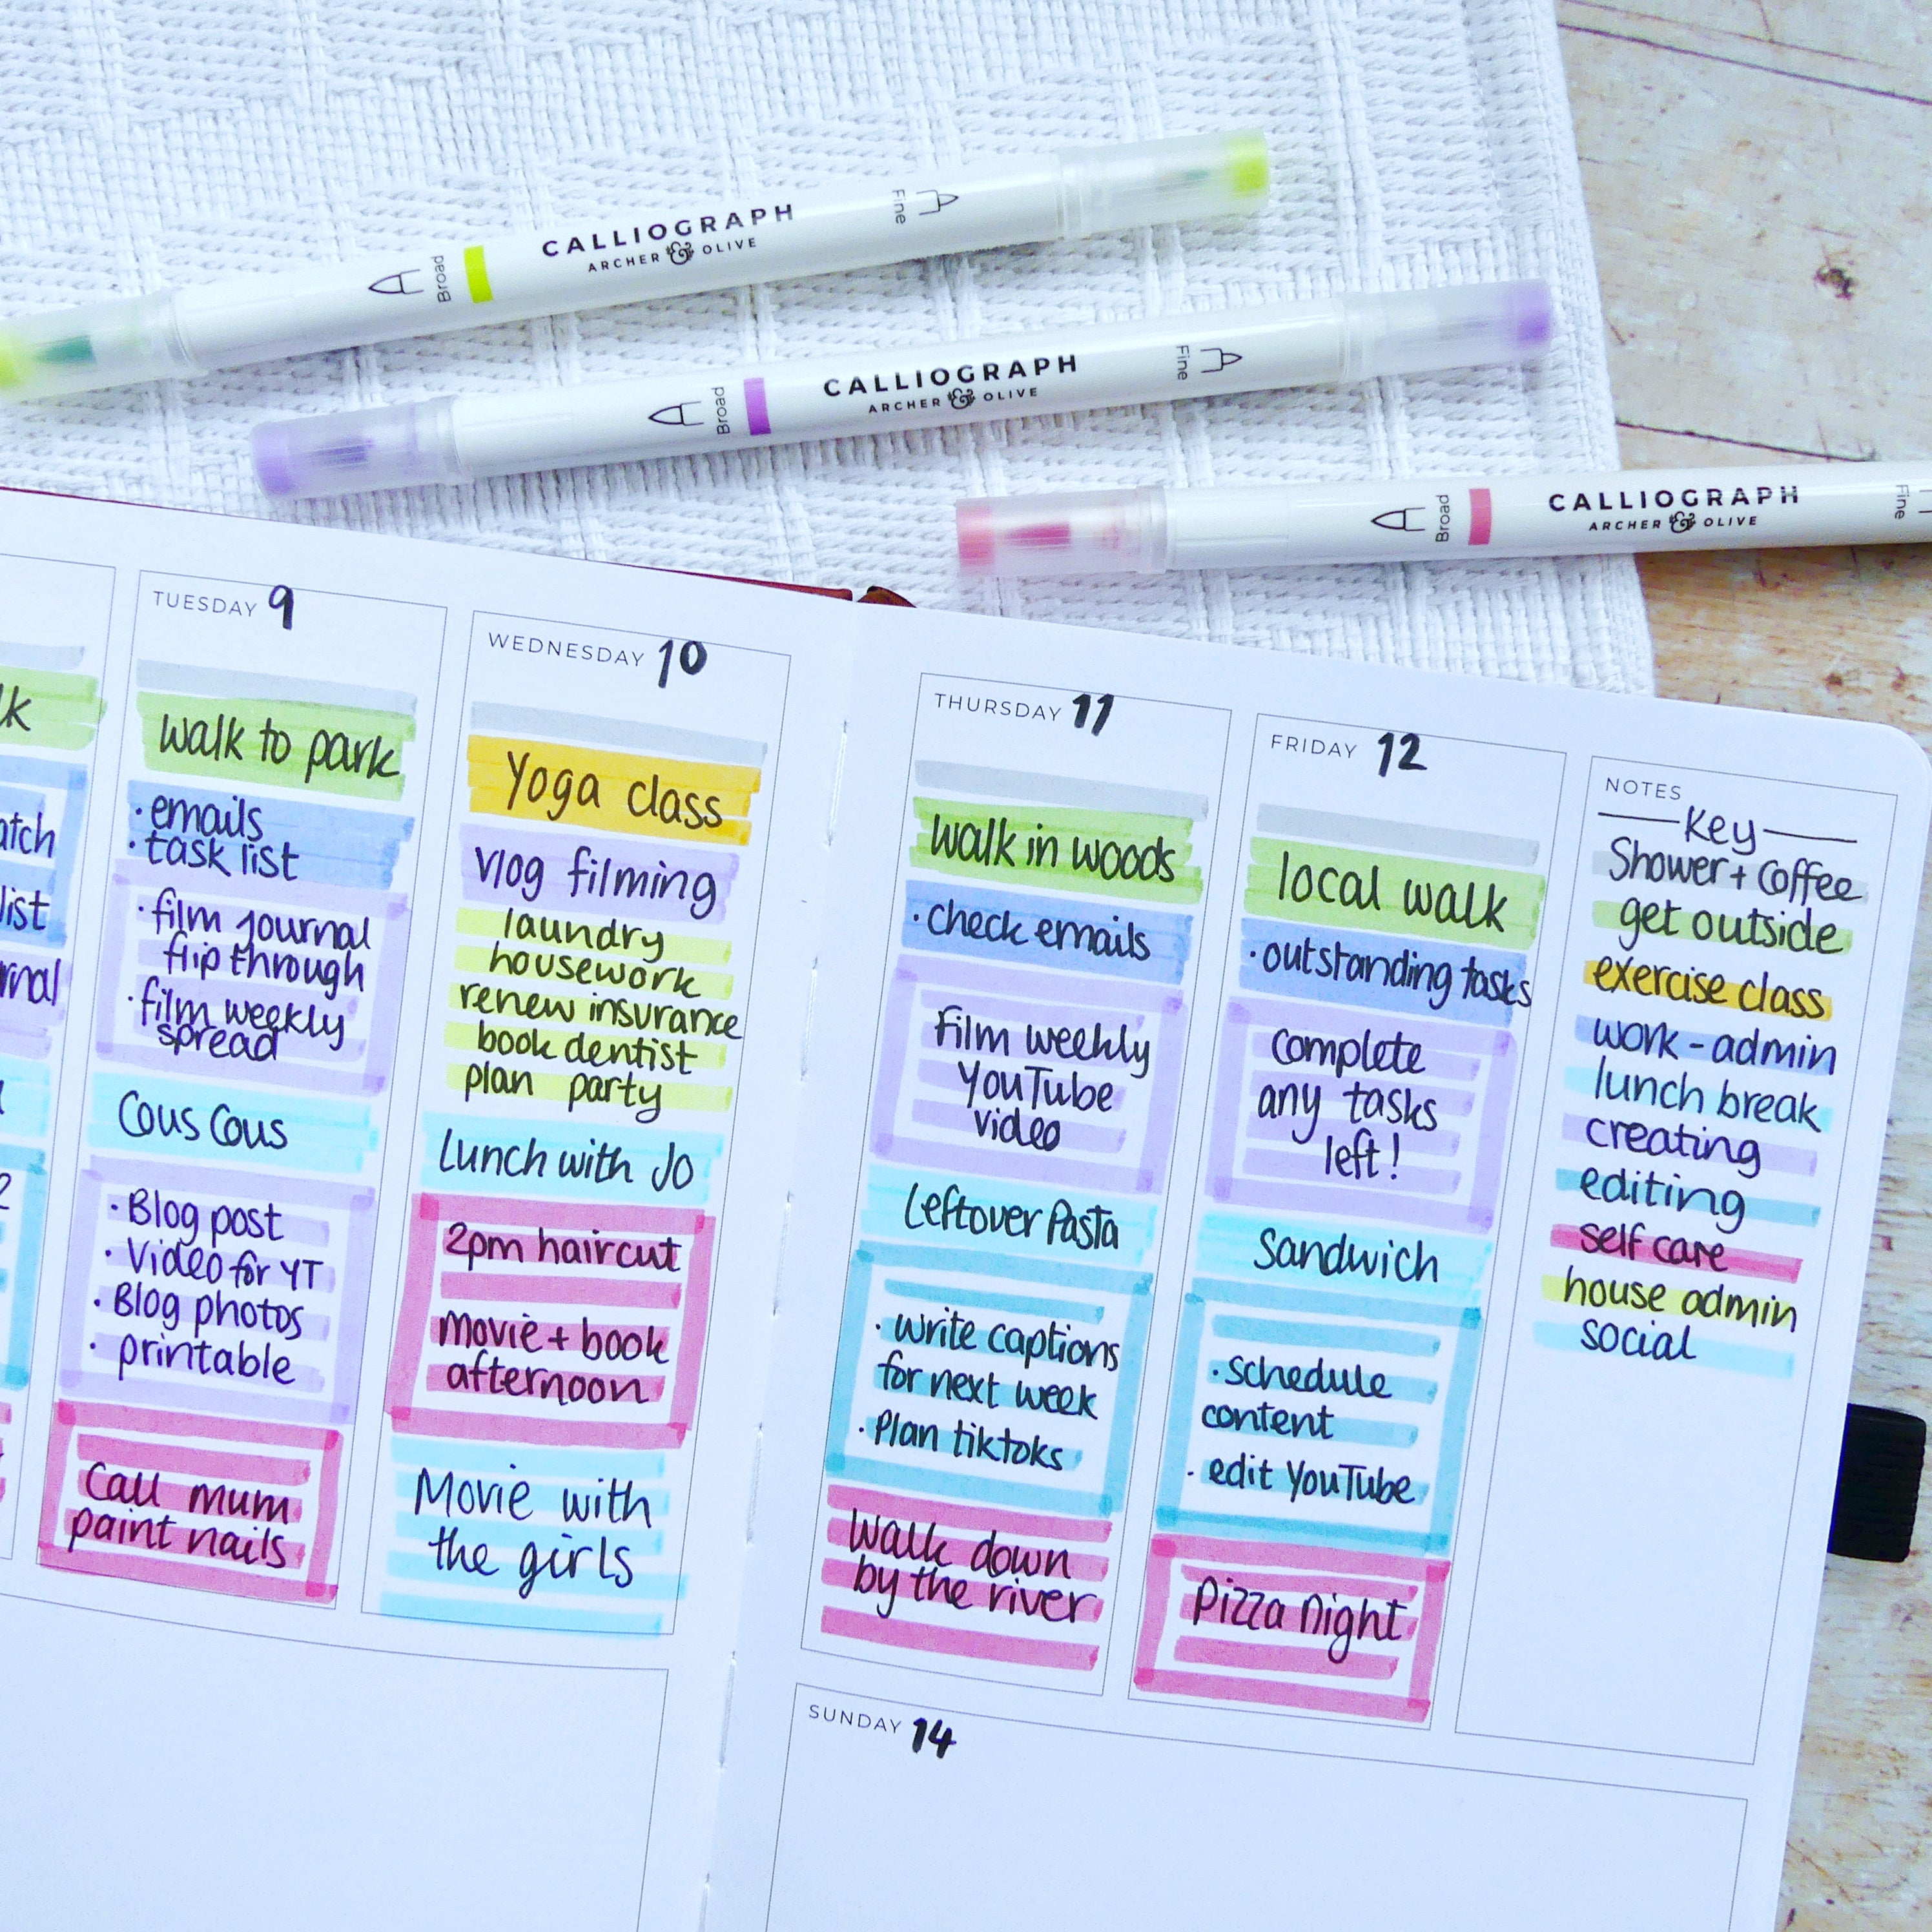 Broad
CALLIOGRAPH
ARCHER & OLIVE
Fine
Broad
CALLIOGRAPH
ARCHER & OLIVE
Fine
Broad
CALLIOGRAPH
ARCHER & OLIVE
Fine
list
TUESDAY 9
walk to park
· emails
· task list
· film journal
flip through
· film weekly
spread
Cous Cous
· Blog post
· Video for YT
· Blog photos
· printable
Call mum
paint nails
WEDNESDAY 10
Yoga class
Vlog filming
laundry
housework
renew insurance
book dentist
plan party
Lunch with Jo
2pm haircut
movie + book
afternoon
Movie with
the girls
THURSDAY 11
walk in woods
· check emails
Film weekly
YouTube
video
Leftover Pasta
· write captions
for next week
· Plan tiktoks
Walk down
by the river
FRIDAY 12
local walk
· outstanding tasks
Complete
any tasks
left!
Sandwich
· schedule
content
· edit YouTube
Pizza Night
NOTES
Key
Shower + Coffee
get outside
exercise class
work - admin
lunch break
creating
editing
self care
house admin
social
SUNDAY 14